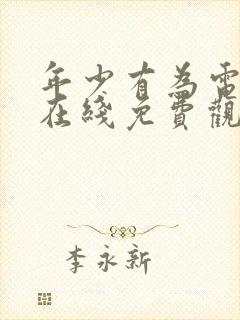 年少有為電
在綫免費觀
李永新